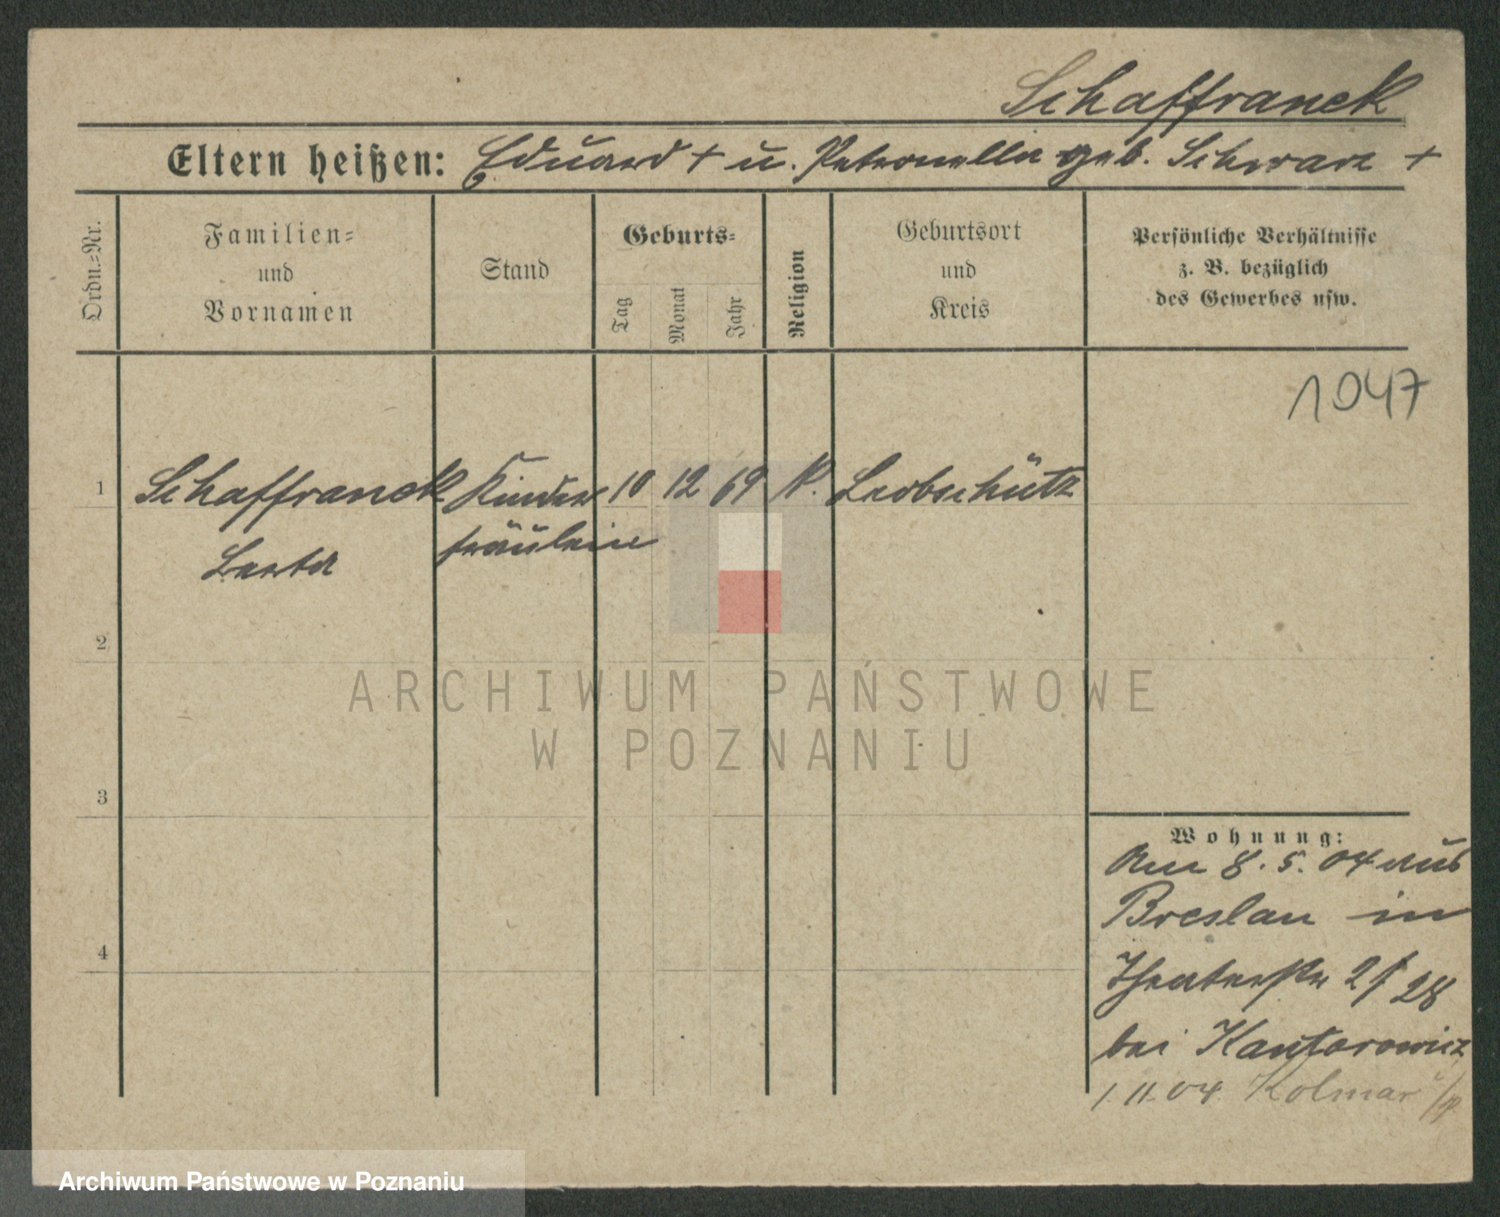 Schaffranck
Eltern heißen: Eduard + u. Petronella geb. Schwarz +
Ordn.=Nr.
Familien=
und
Vornamen
Stand
Geburts=
Tag
Monat
Jahr
Religion
Geburtsort
und
Kreis
Persönliche Verhältnisse
z. B. bezüglich
des Gewerbes usw.
1047
1 Schaffranck Kinder 10 12 69 K. Leobschütz
fräulein
2
3
4
Wohnung:
Am 8. 5. 04 aus
Breslau in
Theaterstr 2/ 28
bei Kantorowicz
1. 11. 04 Kolmar
ARCHIWUM PAŃSTWOWE
W POZNANIU
Archiwum Państwowe w Poznaniu